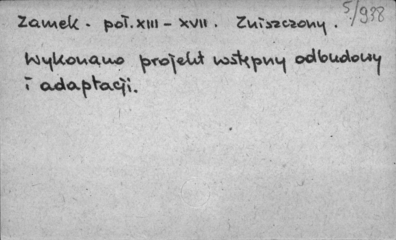 5/938
Zamek - poł. XIII - XVII. Zniszczony.
Wykonano projekt wstępny odbudowy
i adaptacji.